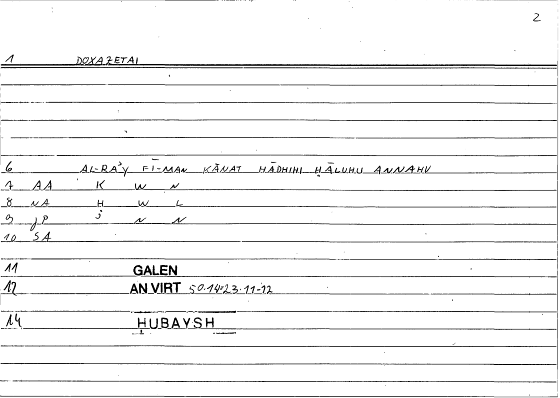 2
1 DOXAZETAI
6 AL-RAʾY FĪ-MAN KĀNAT HĀDHIHI ḤĀLUHU ANNAHU
7 AA K W N
8 NA Ḥ W L
9 jP ʾ N N
10 SA
11 GALEN
12 AN VIRT 50.14-23.11-12
14 ḤUBAYSH